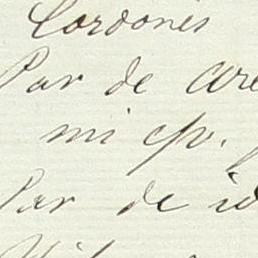 Cordones
Par de are
mi
Par de id